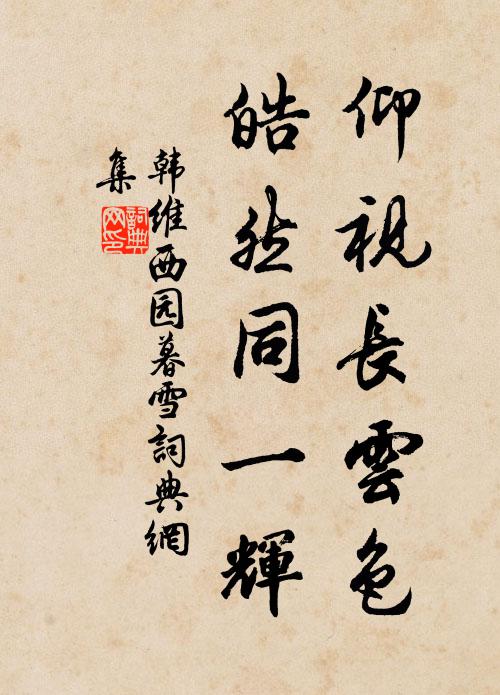 仰視長雲色
皓然同一輝
韩維西园暮雪詞典網
集
詞典
网印